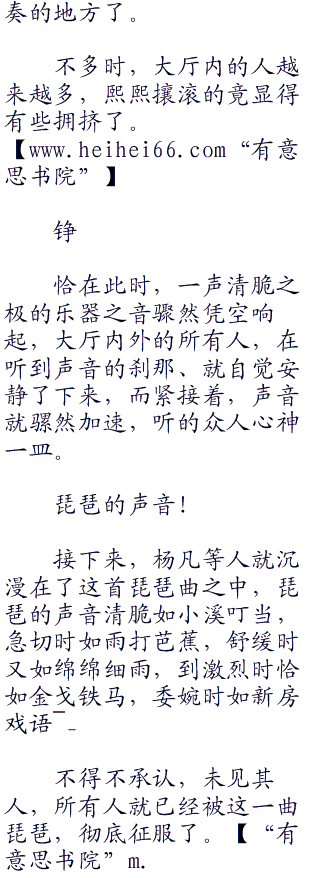 奏的地方了。
不多时，大厅内的人越
来越多，熙熙攘滚的竟显得
有些拥挤了。
【www.heihei66.com“有意
思书院”】
铮
恰在此时，一声清脆之
极的乐器之音骤然凭空响
起，大厅内外的所有人，在
听到声音的刹那、就自觉安
静了下来，而紧接着，声音
就骡然加速，听的众人心神
一皿。
琵琶的声音！
接下来，杨凡等人就沉
漫在了这首琵琶曲之中，琵
琶的声音清脆如小溪叮当，
急切时如雨打芭蕉，舒缓时
又如绵绵细雨，到激烈时恰
如金戈铁马，委婉时如新房
戏语¯_
不得不承认，未见其
人，所有人就已经被这一曲
琵琶，彻底征服了。【“有
意思书院”m.